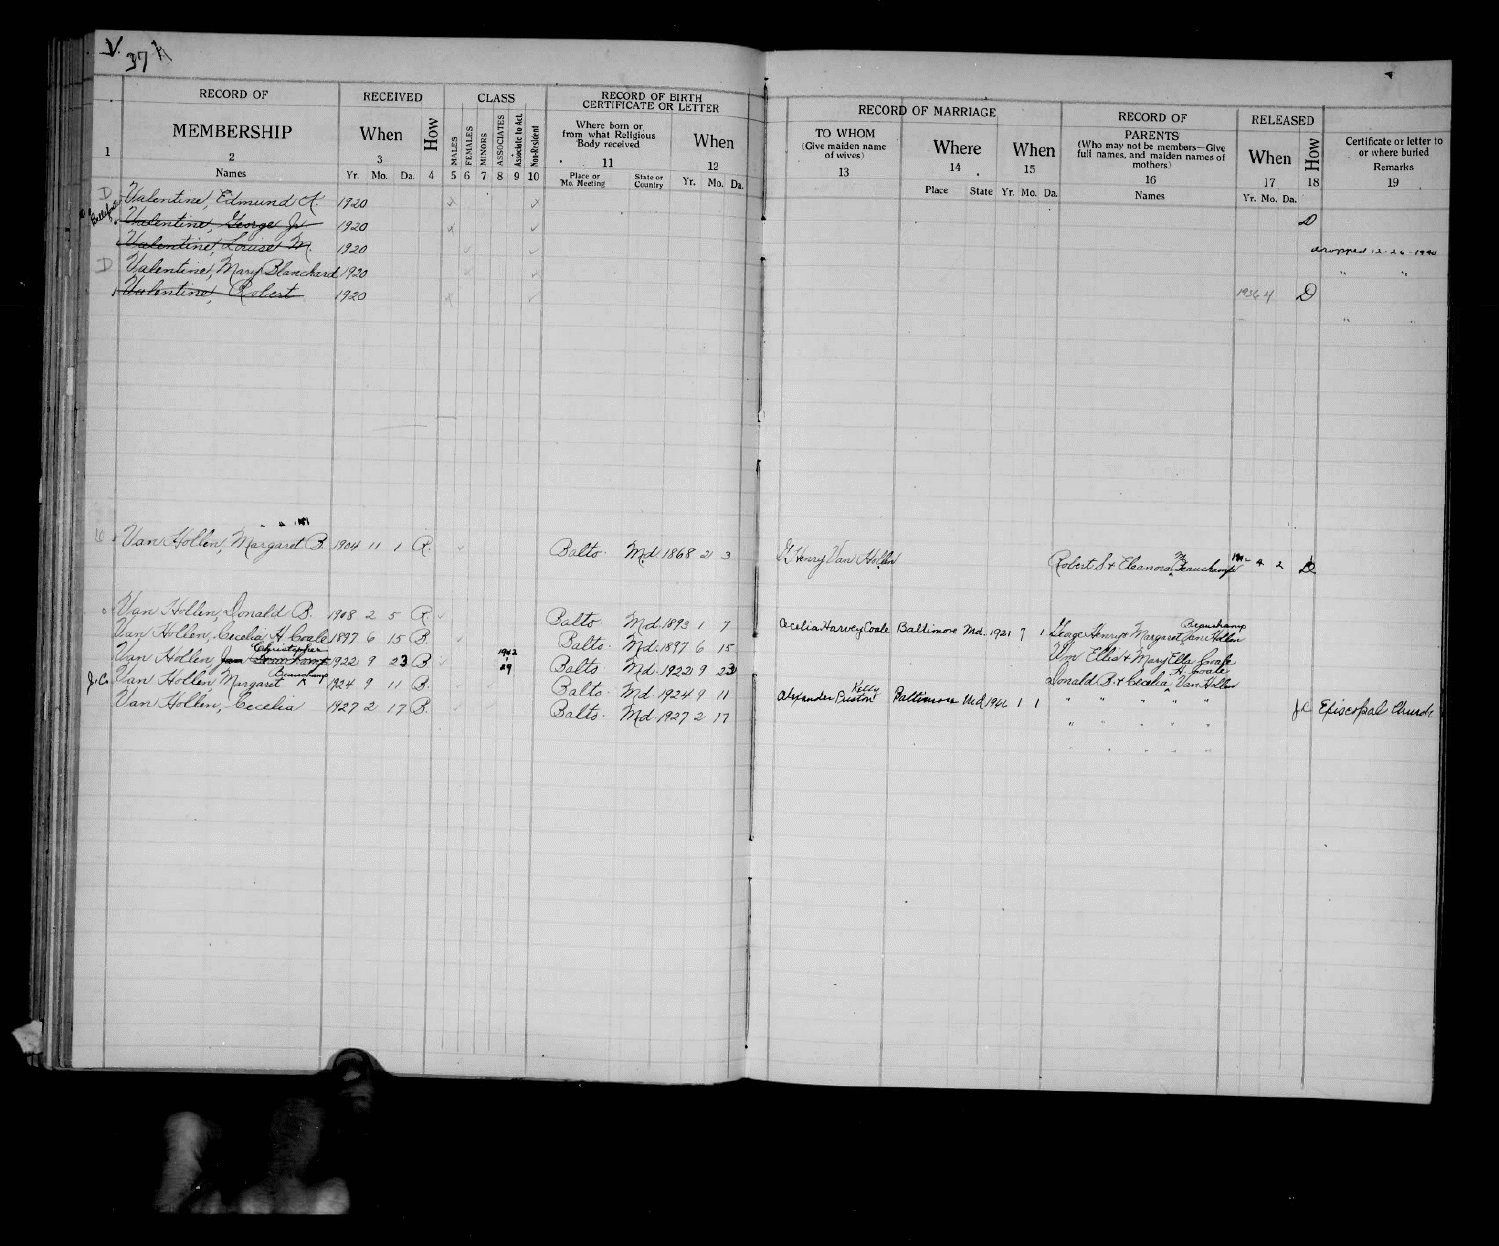 V.
37
RECORD OF
MEMBERSHIP
RECEIVED
When
How
CLASS
MALES
FEMALES
MINORS
ASSOCIATES
Associate to Act.
Non-Resident
RECORD OF BIRTH
CERTIFICATE OR LETTER
Where born or
from what Religious
Body received
When
1 2 3 4 5 6 7 8 9 10 11 12
Names
Yr. Mo. Da.
Place or
Mo. Meeting
State or
Country
Yr. Mo. Da.
RECORD OF MARRIAGE
TO WHOM
(Give maiden name
of wives)
Where
When
RECORD OF
PARENTS
(Who may not be members—Give
full names, and maiden names of
mothers)
RELEASED
When
How
Certificate or letter to
or where buried
Remarks
13 14 15 16 17 18 19
Place State Yr. Mo. Da.
Names
Yr. Mo. Da.
D Valentine, Edmund A. 1920
Valentine, George Jr 1920 D
Valentine, Louise M. 1920 dropped 12-26-1940
D Valentine, Mary Blanchard 1920 " "
Valentine, Robert 1920 1936 4 D
" "
Van Hollen, Margaret B. 1904 11 1 R Balto. Md. 1868 2 3 G Henry Van Hollen Robert S + Eleanora M Beauchamp 4 2 D
Van Hollen, Donald B. 1908 2 5 R Balto. Md. 1893 1 7 Cecelia Harvey Coale Baltimore Md. 1921 7 1 George Henry + Margaret Jane Beauchamp Van Hollen
Van Hollen, Cecelia H Coale 1897 6 15 B Balto. Md. 1897 6 15 Wm Ellis + Mary Ella Coale
Van Hollen, Christopher 1922 9 23 B 1942 Balto Md. 1922 9 23 Donald B. + Cecelia H. Coale Van Hollen
Van Hollen, Margaret Beauchamp 1924 9 11 B. Balto. Md 1924 9 11 Alexander Preston Kelly Baltimore Md " " " " "
Van Hollen, Cecelia 1927 2 17 B. Balto. Md 1927 2 17 " " " " " Episcopal Church